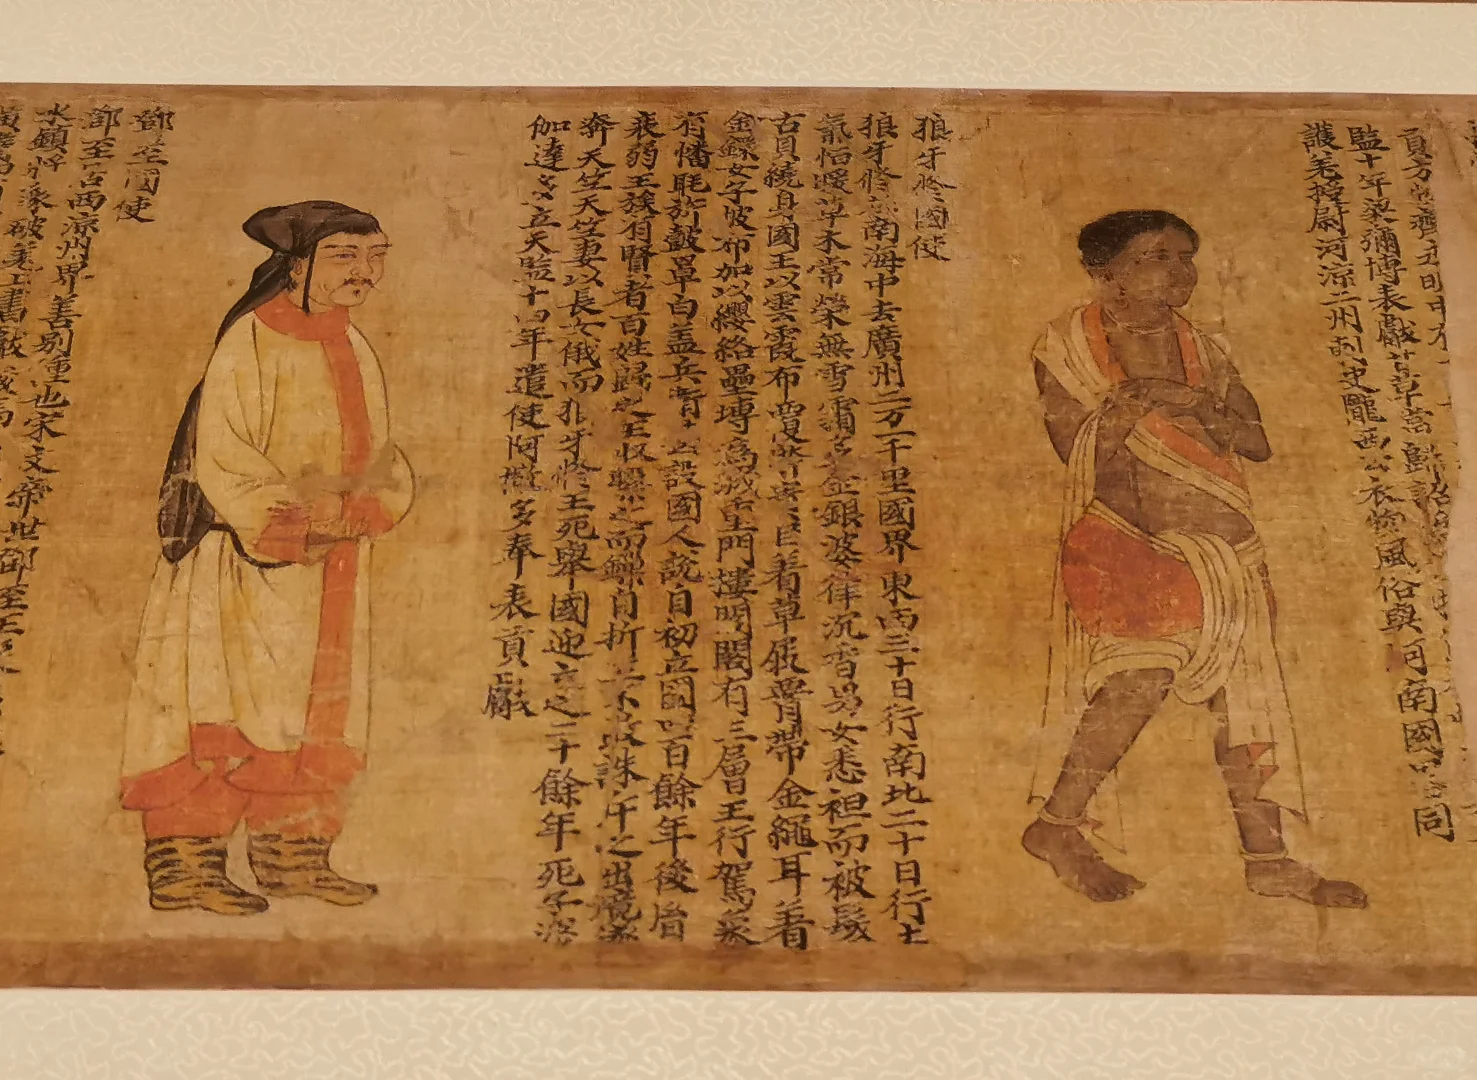 貢方物齊永明中
監十年梁彌博表獻甘草當歸詔
護羌校尉河涼二州刺史隴西公衣物風俗與河南國略同
狼牙脩國使
狼牙脩在南海中去廣州二万一千里國界東西三十日行南北二十日行土
氣怕暖草木常榮無雪霜多金銀婆律沉香男女悉袒而被髮
古貝繞身國王以雲霞布覆 貴臣著草屐胷帶金繩耳著
金鐶女子披布加以纓絡壘塼為城重門樓明閣有三層王行駕象
有幡毦旂皷罩白盖兵衛甚設國人說自初立國四百餘年後
衰弱王族有賢者百姓歸之王収繫之而鏁自折王不敢誅斥之出境遂
奔天竺天竺妻以長女俄而狼牙脩王死舉國迎立之二十餘年死子婆
伽達多立天監十四年遣使阿撤多奉表貢獻
鄧至國使
鄧至居西涼州界羌別種也宋文帝世鄧至王
水鎮將象破羌上書獻